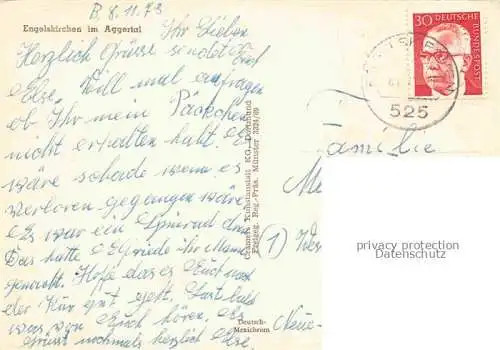 B. 8.11.73
Engelskirchen im Aggertal
Ihr Lieben
Herzlich Grüsse sendet Euch
Else. Will mal anfragen
ob Ihr mein Päckchen
nicht erhalten habt. Es
wäre schade wenn es
verloren gegangen wäre
Es war ein Spinrad
Das hatte Elfriede Ihr Mann
gemacht. Hoffe das es Euch
der Kur gut geht. Lasst bald
was von Euch hören. Es
Grüsst nochmals herzlich Else.
Cramers Kunstanstalt KG. Dortmund
Freigeg. Reg.-Präs. Münster 3224/69
Deutsch-
Mexichrom
30 DEUTSCHE
BUNDESPOST
525
Familie
(1)
Neue-
privacy protection
Datenschutz